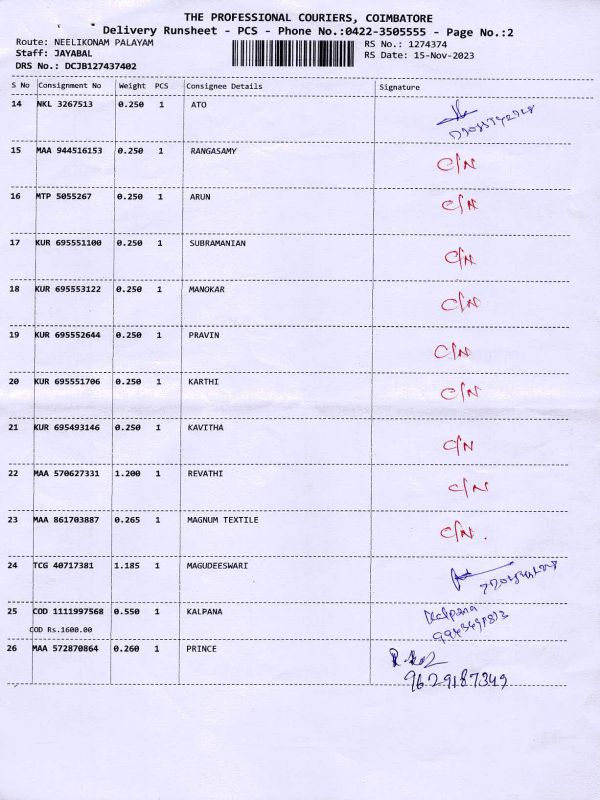 THE PROFESSIONAL COURIERS, COIMBATORE
Delivery Runsheet - PCS - Phone No.:0422-3505555 - Page No.:2
Route: NEELIKONAM PALAYAM RS No.: 1274374
Staff: JAYABAL RS Date: 15-Nov-2023
DRS No.: DCJB127437402
S No Consignment No Weight PCS Consignee Details Signature
14 NKL 3267513 0.250 1 ATO
15 MAA 944516153 0.250 1 RANGASAMY C/N
16 MTP 5055267 0.250 1 ARUN C/N
17 KUR 695551100 0.250 1 SUBRAMANIAN C/N
18 KUR 695553122 0.250 1 MANOKAR C/N
19 KUR 695552644 0.250 1 PRAVIN C/N
20 KUR 695551706 0.250 1 KARTHI C/N
21 KUR 695493146 0.250 1 KAVITHA C/N
22 MAA 570627331 1.200 1 REVATHI C/N
23 MAA 861703887 0.265 1 MAGNUM TEXTILE C/N.
24 TCG 40717381 1.185 1 MAGUDEESWARI
25 COD 1111997568 0.550 1 KALPANA Kalpana
COD Rs.1600.00
26 MAA 572870864 0.260 1 PRINCE
9629187349